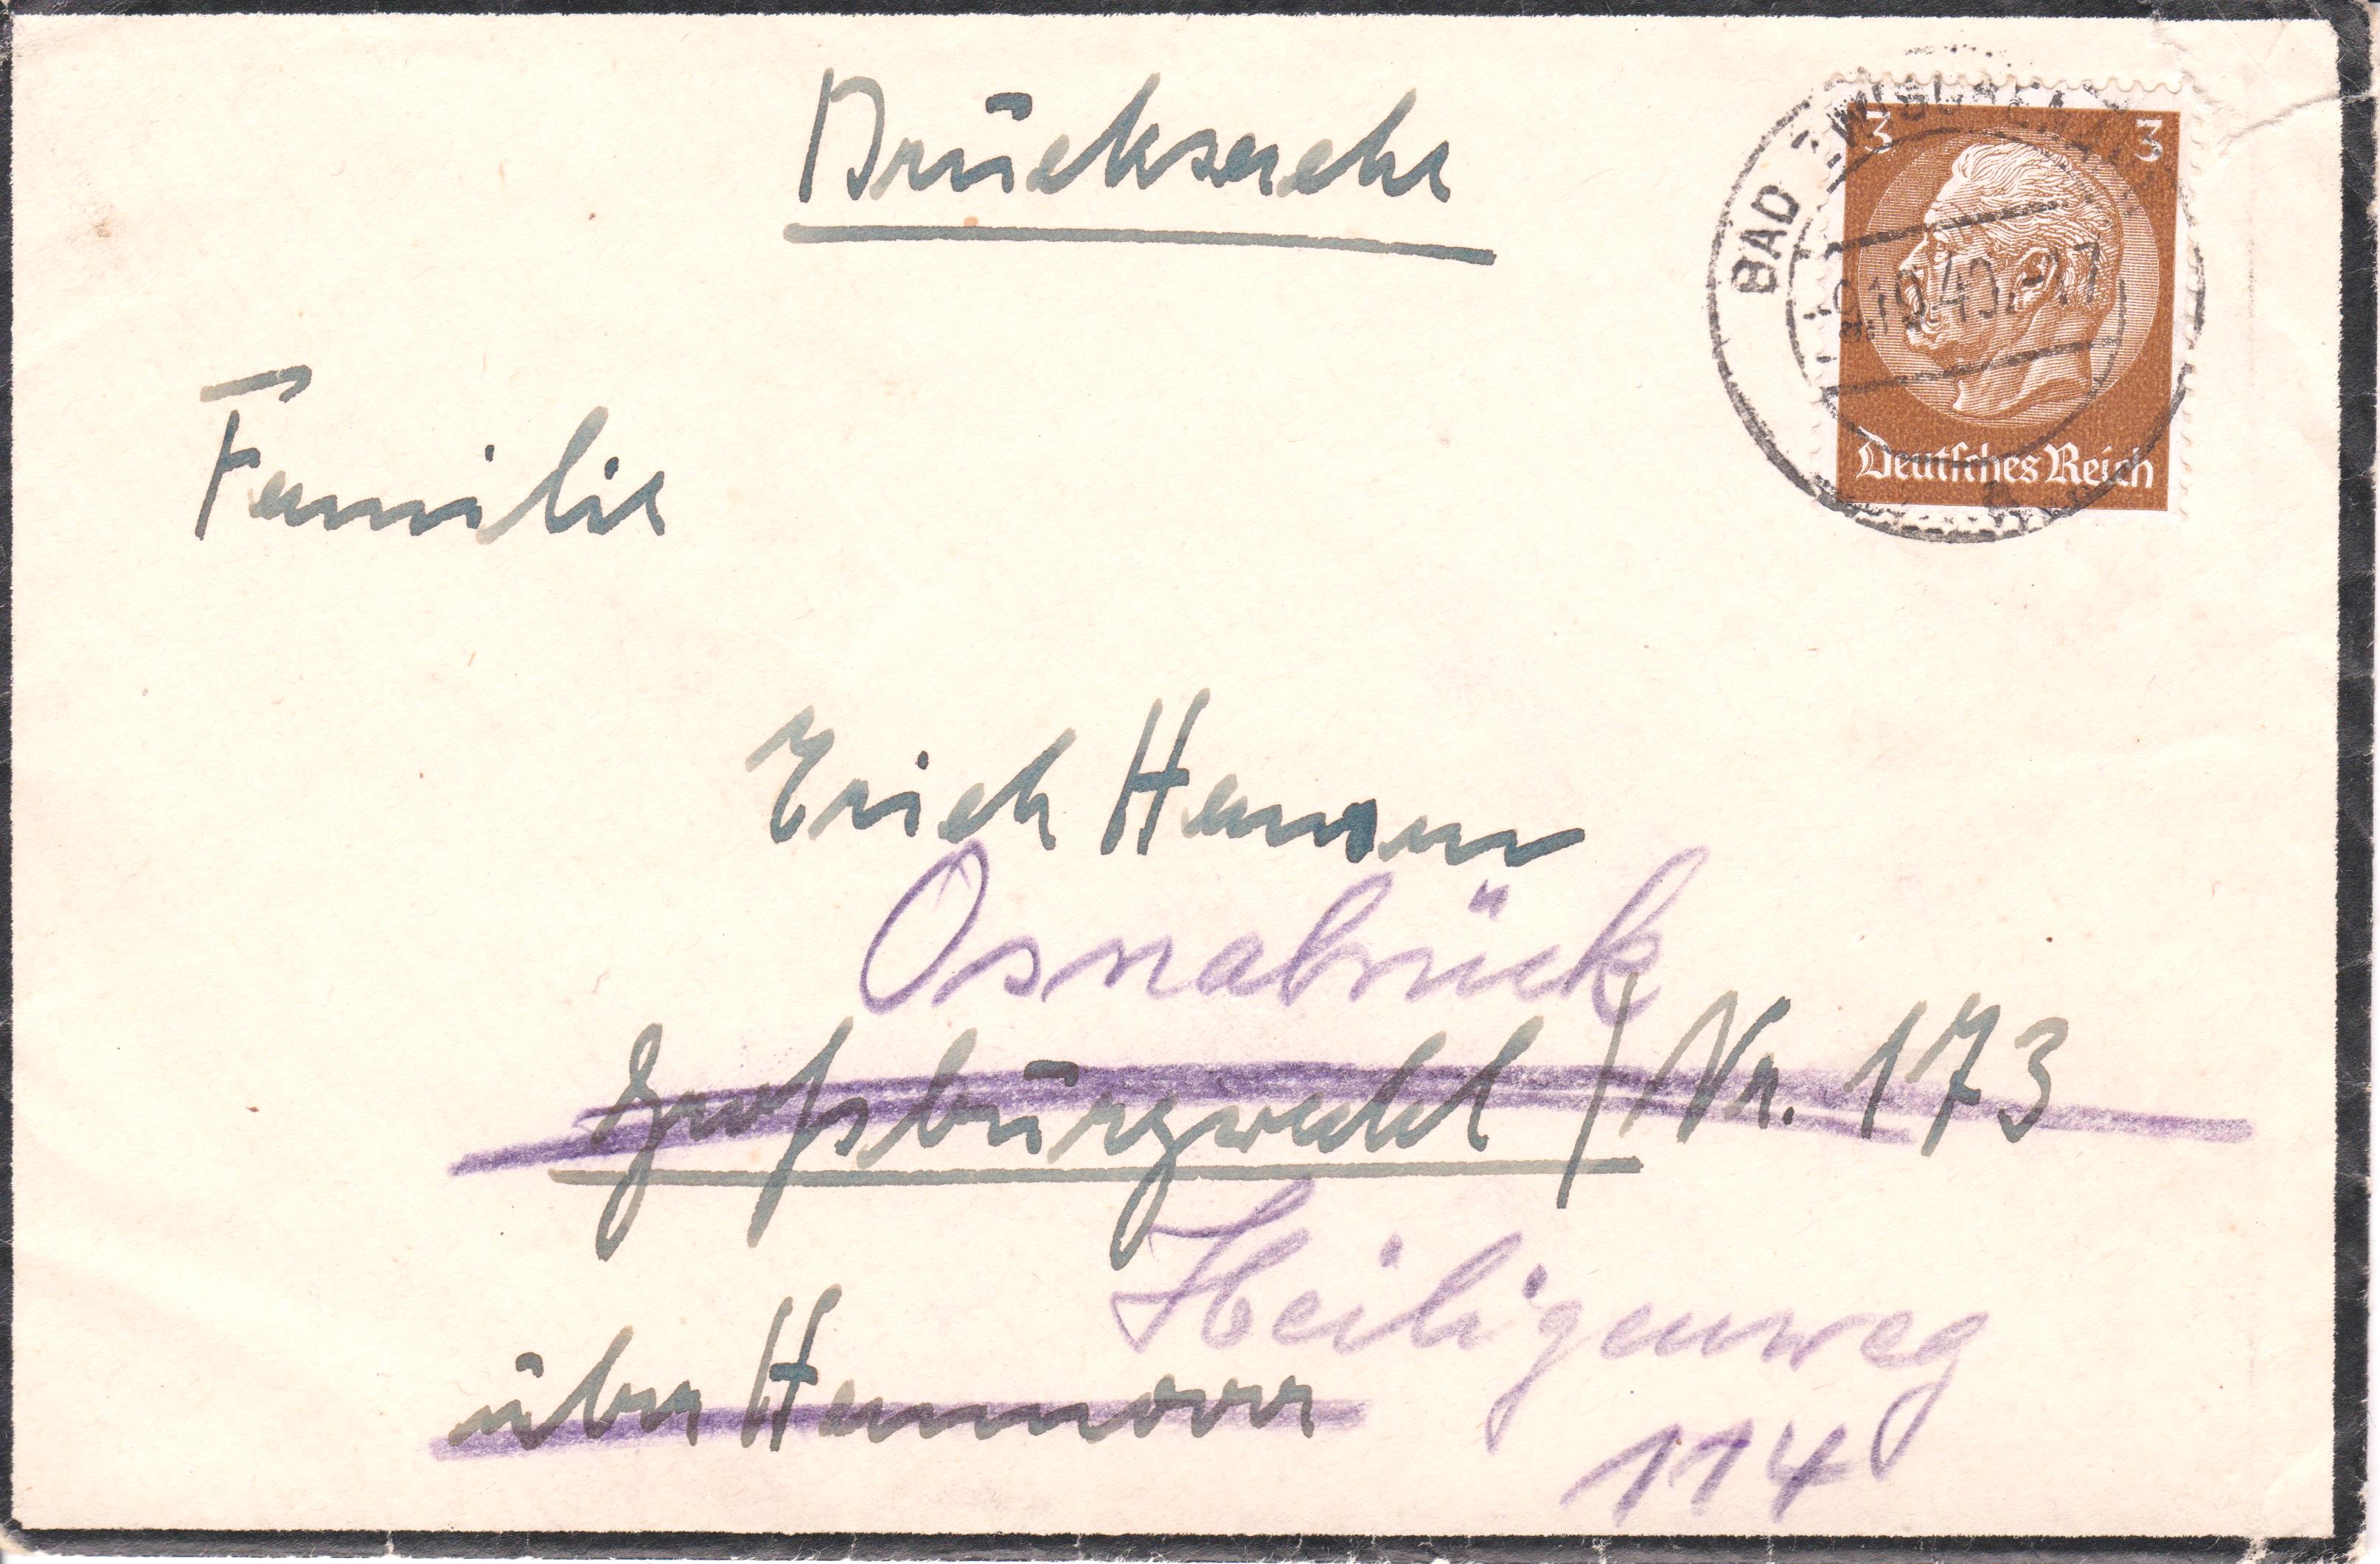 Drucksache
3 3
BAD ZWISCHENAHN
9.10.40.-17
Deutſches Reich
Familie
Erich
Osnabrück
Großburgwedel / Nr. 173
Heiligenweg
über Hannover
114